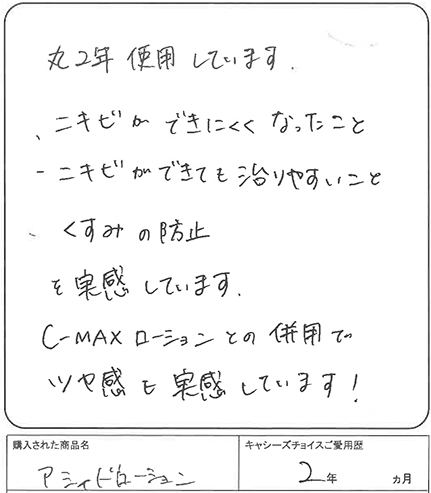 丸2年 使用しています.
、ニキビが できにくく なったこと
- ニキビができても 治りやすいこと
、くすみの防止
を実感しています.
C-MAXローションとの併用で
ツヤ感も実感しています!
購入された商品名
キャシーズチョイスご愛用歴
アシッドローション
2年 ヵ月